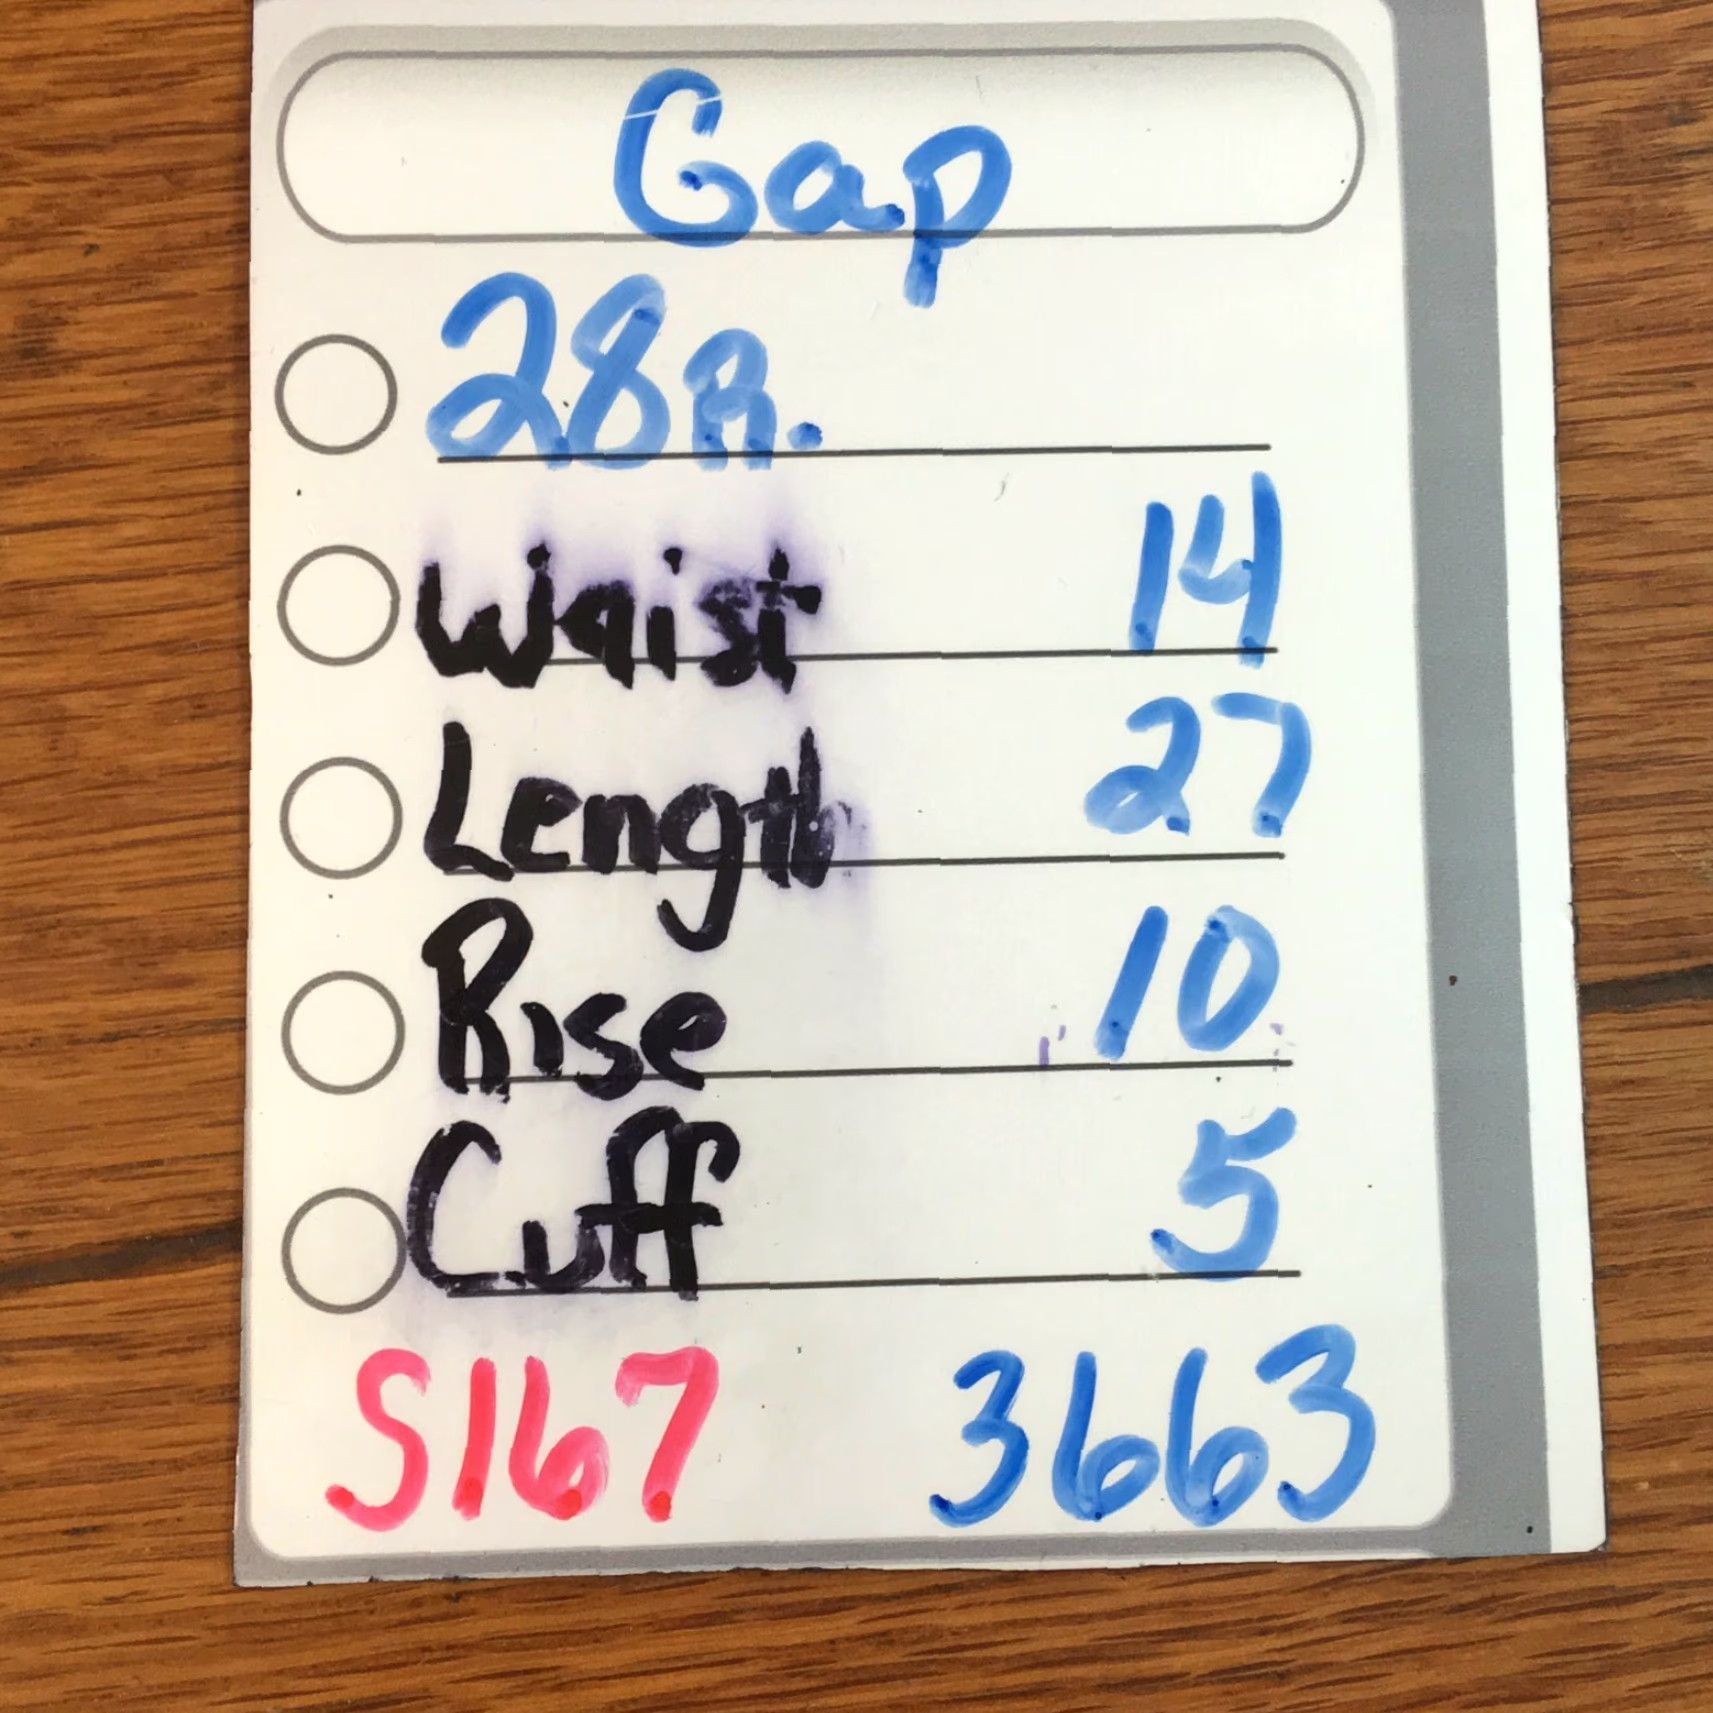 Gap
28R.
Waist 14
Length 27
Rise 10
Cuff 5
S167 3663